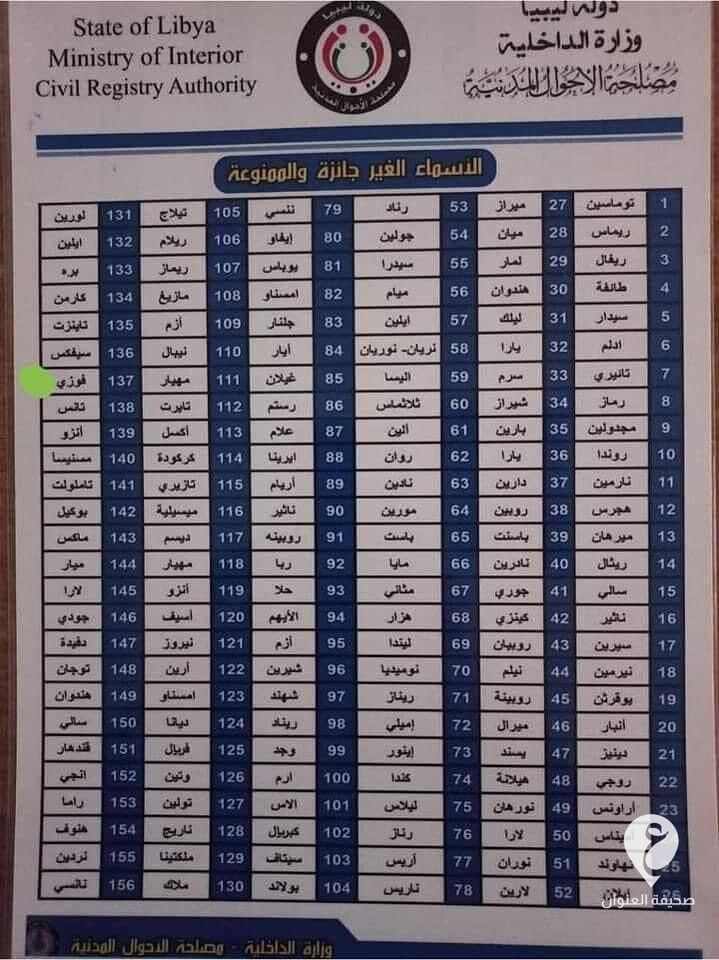 State of Libya
Ministry of Interior
Civil Registry Authority
دولة ليبيا
وزارة الداخلية
مصلحة الأحوال المدنية
دولة ليبيا
مصلحة الأحوال المدنية
الأسماء الغير جائزة والممنوعة
1 توماسين 27 ميراز 53 رناد 79 ننسي 105 تيلاج 131 لورين
2 ريماس 28 ميان 54 جولين 80 إيفاو 106 ريلام 132 ايلين
3 ريفال 29 لمار 55 سيدرا 81 يوباس 107 ريماز 133 بره
4 طائفة 30 هندوان 56 ميام 82 امسناو 108 مازيغ 134 كارمن
5 سيدار 31 ليلك 57 ايلين 83 جلنار 109 أزم 135 تاينزت
6 ادلم 32 يارا 58 نريان- نوريان 84 أيار 110 نيبال 136 سيفكس
7 تانيري 33 سرم 59 اليسا 85 غيلان 111 مهيار 137 فوزي
8 رماز 34 شيراز 60 ثلاثماس 86 رستم 112 تايرت 138 تانس
9 مجدولين 35 بارين 61 ألين 87 علام 113 أكسل 139 أنزو
10 روندا 36 يارا 62 روان 88 ايرينا 114 كركودة 140 مسنيسا
11 نارمين 37 دارين 63 نادين 89 أريام 115 تازيري 141 تاملولت
12 هجرس 38 روبين 64 مورين 90 ناثير 116 ميسيلية 142 بوكيل
13 ميرهان 39 باسنت 65 باست 91 روبينه 117 ديسم 143 ماكس
14 ريثال 40 نادرين 66 مايا 92 ربا 118 مهيار 144 ميار
15 سالي 41 جوري 67 مثاني 93 حلا 119 أنزو 145 لارا
16 ناثير 42 كينزي 68 هزار 94 الأيهم 120 أسيف 146 جودي
17 سيرين 43 روبيان 69 ليندا 95 أزم 121 نيروز 147 دفيدة
18 نيرمين 44 نيلم 70 نوميديا 96 شيرين 122 أرين 148 توجان
19 يوقرثن 45 روبينة 71 ريناز 97 شهند 123 امسناو 149 هندوان
20 أنبار 46 ميرال 72 إميلي 98 ريناد 124 ديانا 150 سالي
21 دينيز 47 يسند 73 إينور 99 وجد 125 فريال 151 قندهار
22 روجي 48 هيلانة 74 كندا 100 ارم 126 وتين 152 انجي
23 أراونس 49 نورهان 75 ليلاس 101 الاس 127 تولين 153 راما
50 لارا 76 رناز 102 كبريال 128 تاريج 154 هنوف
25 نهاوند 51 نوران 77 أريس 103 سيتاف 129 ملكتينا 155 نردين
26 إيلان 52 لارين 78 ناريس 104 بولاند 130 ملاك 156 نانسي
صحيفة العنوان
وزارة الداخلية - مصلحة الاحوال المدنية